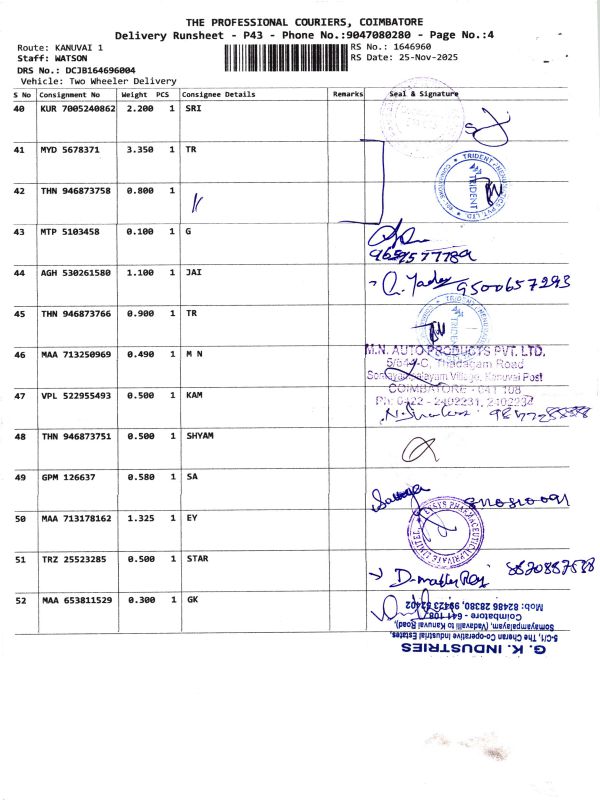 THE PROFESSIONAL COURIERS, COIMBATORE
Delivery Runsheet - P43 - Phone No.:9047080280 - Page No.:4
Route: KANUVAI 1
RS No.: 1646960
Staff: WATSON
RS Date: 25-Nov-2025
DRS No.: DCJB164696004
Vehicle: Two Wheeler Delivery
S No Consignment No Weight PCS Consignee Details Remarks Seal & Signature
40 KUR 7005240862 2.200 1 SRI
41 MYD 5678371 3.350 1 TR
TRIDENT
42 THN 946873758 0.800 1
43 MTP 5103458 0.100 1 G
44 AGH 530261580 1.100 1 JAI
9500657293
45 THN 946873766 0.900 1 TR
TRIDENT
46 MAA 713250969 0.490 1 M N
M.N. AUTO PRODUCTS PVT. LTD.
Thadagam Road
Kanuvai Post
47 VPL 522955493 0.500 1 KAM
COIMBATORE - 641 108
Ph: 0422 - 2402231,
48 THN 946873751 0.500 1 SHYAM
49 GPM 126637 0.580 1 SA
50 MAA 713178162 1.325 1 EY
51 TRZ 25523285 0.500 1 STAR
52 MAA 653811529 0.300 1 GK
G. K. INDUSTRIES
5-C/1, The Cheran Co-operative Industrial Estates,
Somayampalayam, (Vadavalli to Kanuvai Road),
Coimbatore - 641 108
Mob: 82486 28380,